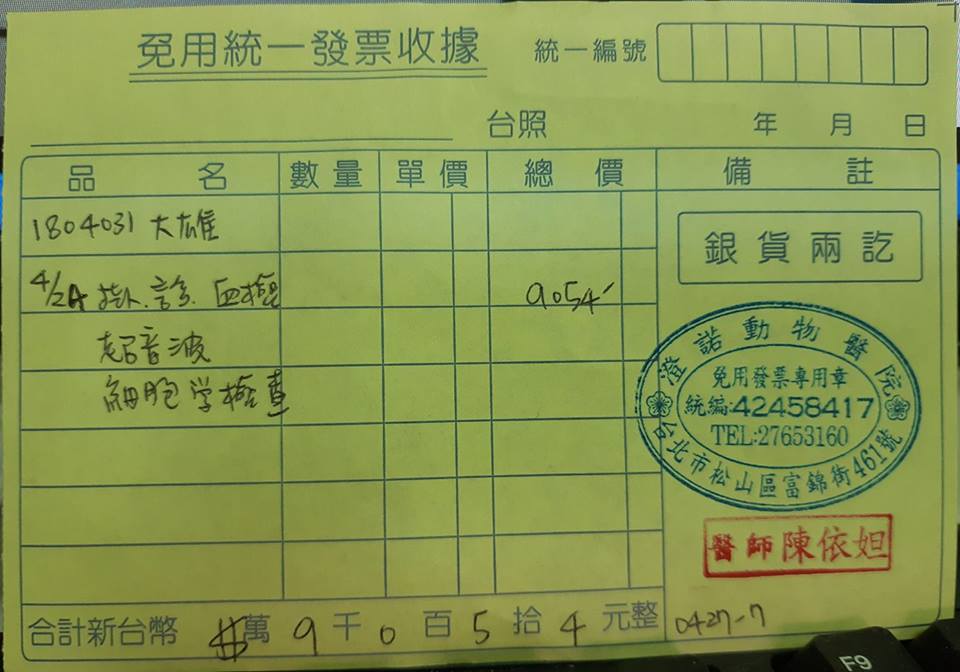 免用統一發票收據
統一編號
台照 年 月 日
品名 數量 單價 總價 備註
1804031 大雄
銀貨兩訖
4/2A 掛.診. 血檢 9054
超音波
細胞学檢查
澄諾動物醫院
免用發票專用章
統編:42458417
TEL:27653160
台北市松山區富錦街461號
醫師陳依妲
合計新台幣 萬 9 千 0 百 5 拾 4 元整
0427-7
F9